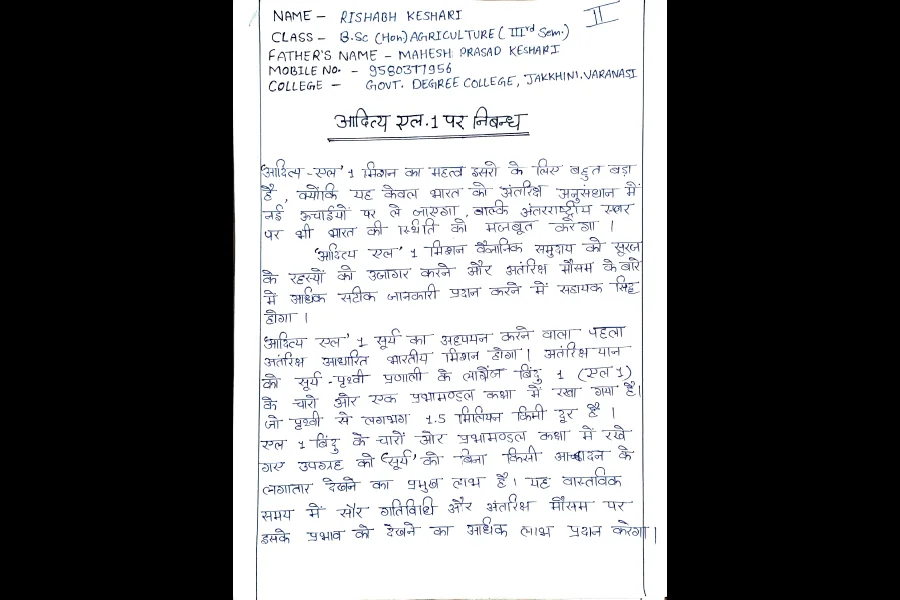 NAME - RISHABH KESHARI
II
CLASS - B.Sc (Hon) AGRICULTURE (IIIrd Sem.)
FATHER'S NAME - MAHESH PRASAD KESHARI
MOBILE No. - 9580377956
COLLEGE - GOVT. DEGREE COLLEGE, JAKKHINI, VARANASI
आदित्य एल.1 पर निबन्ध
'आदित्य-एल' 1 मिशन का महत्व इसरो के लिए बहुत बड़ा
है, क्योंकि यह केवल भारत को अंतरिक्ष अनुसंधान में
नई ऊचाईयों पर ले जाएगा, बल्कि अंतरराष्ट्रीय स्तर
पर भी भारत की स्थिति को मजबूत करेगा।
'आदित्य एल' 1 मिशन वैज्ञानिक समुदाय को सूरज
के रहस्यों को उजागर करने और अंतरिक्ष मौसम के बारे
में अधिक सटीक जानकारी प्रदान करने में सहायक सिद्ध
होगा।
'आदित्य एल' 1 सूर्य का अध्ययन करने वाला पहला
अंतरिक्ष आधारित भारतीय मिशन होगा। अंतरिक्ष यान
को सूर्य-पृथ्वी प्रणाली के लाग्रेंज बिंदु 1 (एल 1)
के चारो और एक प्रभामण्डल कक्षा में रखा गया है।
जो पृथ्वी से लगभग 1.5 मिलियन किमी दूर है।
एल 1 बिंदु के चारों ओर प्रभामण्डल कक्षा में रखे
गए उपग्रह को 'सूर्य' को बिना किसी आच्छादन के
लगातार देखने का प्रमुख लाभ है। यह वास्तविक
समय में सौर गतिविधि और अंतरिक्ष मौसम पर
इसके प्रभाव को देखने का अधिक लाभ प्रदान करेगा।